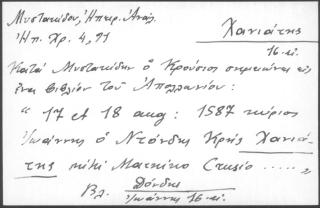 Μυστακίδου, Ἠπειρ. Ἀνάλ.
Ἠπ. Χρ. 4, 91
Χανιάτης
16. αἰ.
Κατά Μυστακίδην ὁ Κρούσιος σημειώνει εἰς
ἕνα βιβλίον τοῦ Ἀπολλωνίου:
" 17 et 18 aug: 1587 κύριος
Ἰωάννης ὁ Ντόνδης Κρής Χανιά-
της
..... "
Βλ. Δόνδης
Ἰωάννης 16. αἰ.